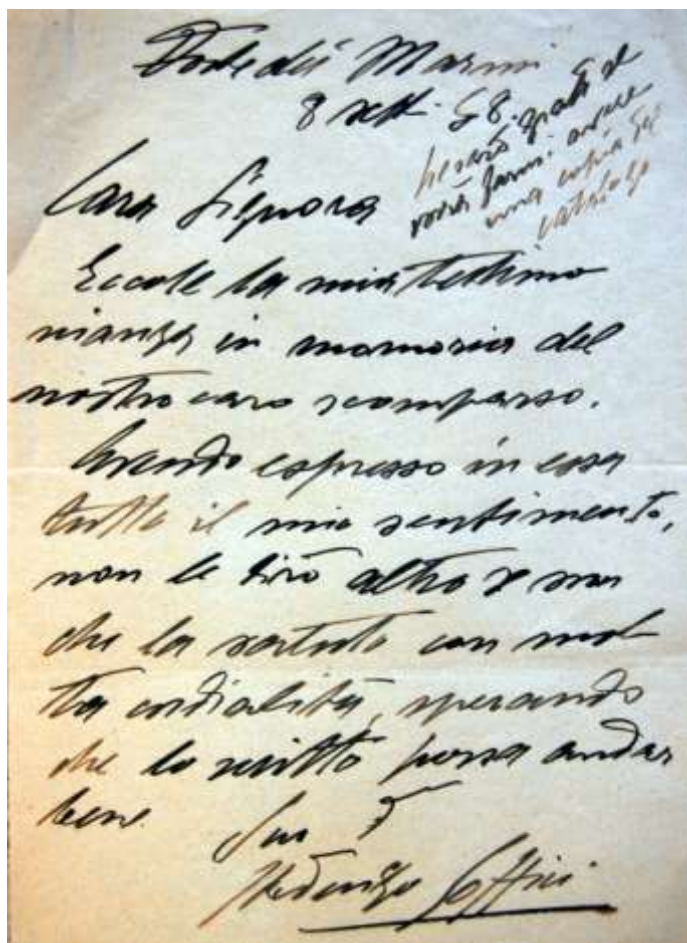 Forte dei Marmi
8 sett. 58.
Le sarò grato se
vorrà farmi avere
una copia del
catalogo
Cara Signora
Eccole la mia testimo
nianza in memoria del
nostro caro scomparso.
Avendo espresso in essa
tutto il mio sentimento,
non le dirò altro se non
che la saluto con mol-
ta cordialità, sperando
che lo scritto possa andar
bene.
Suo
Ardengo Soffici